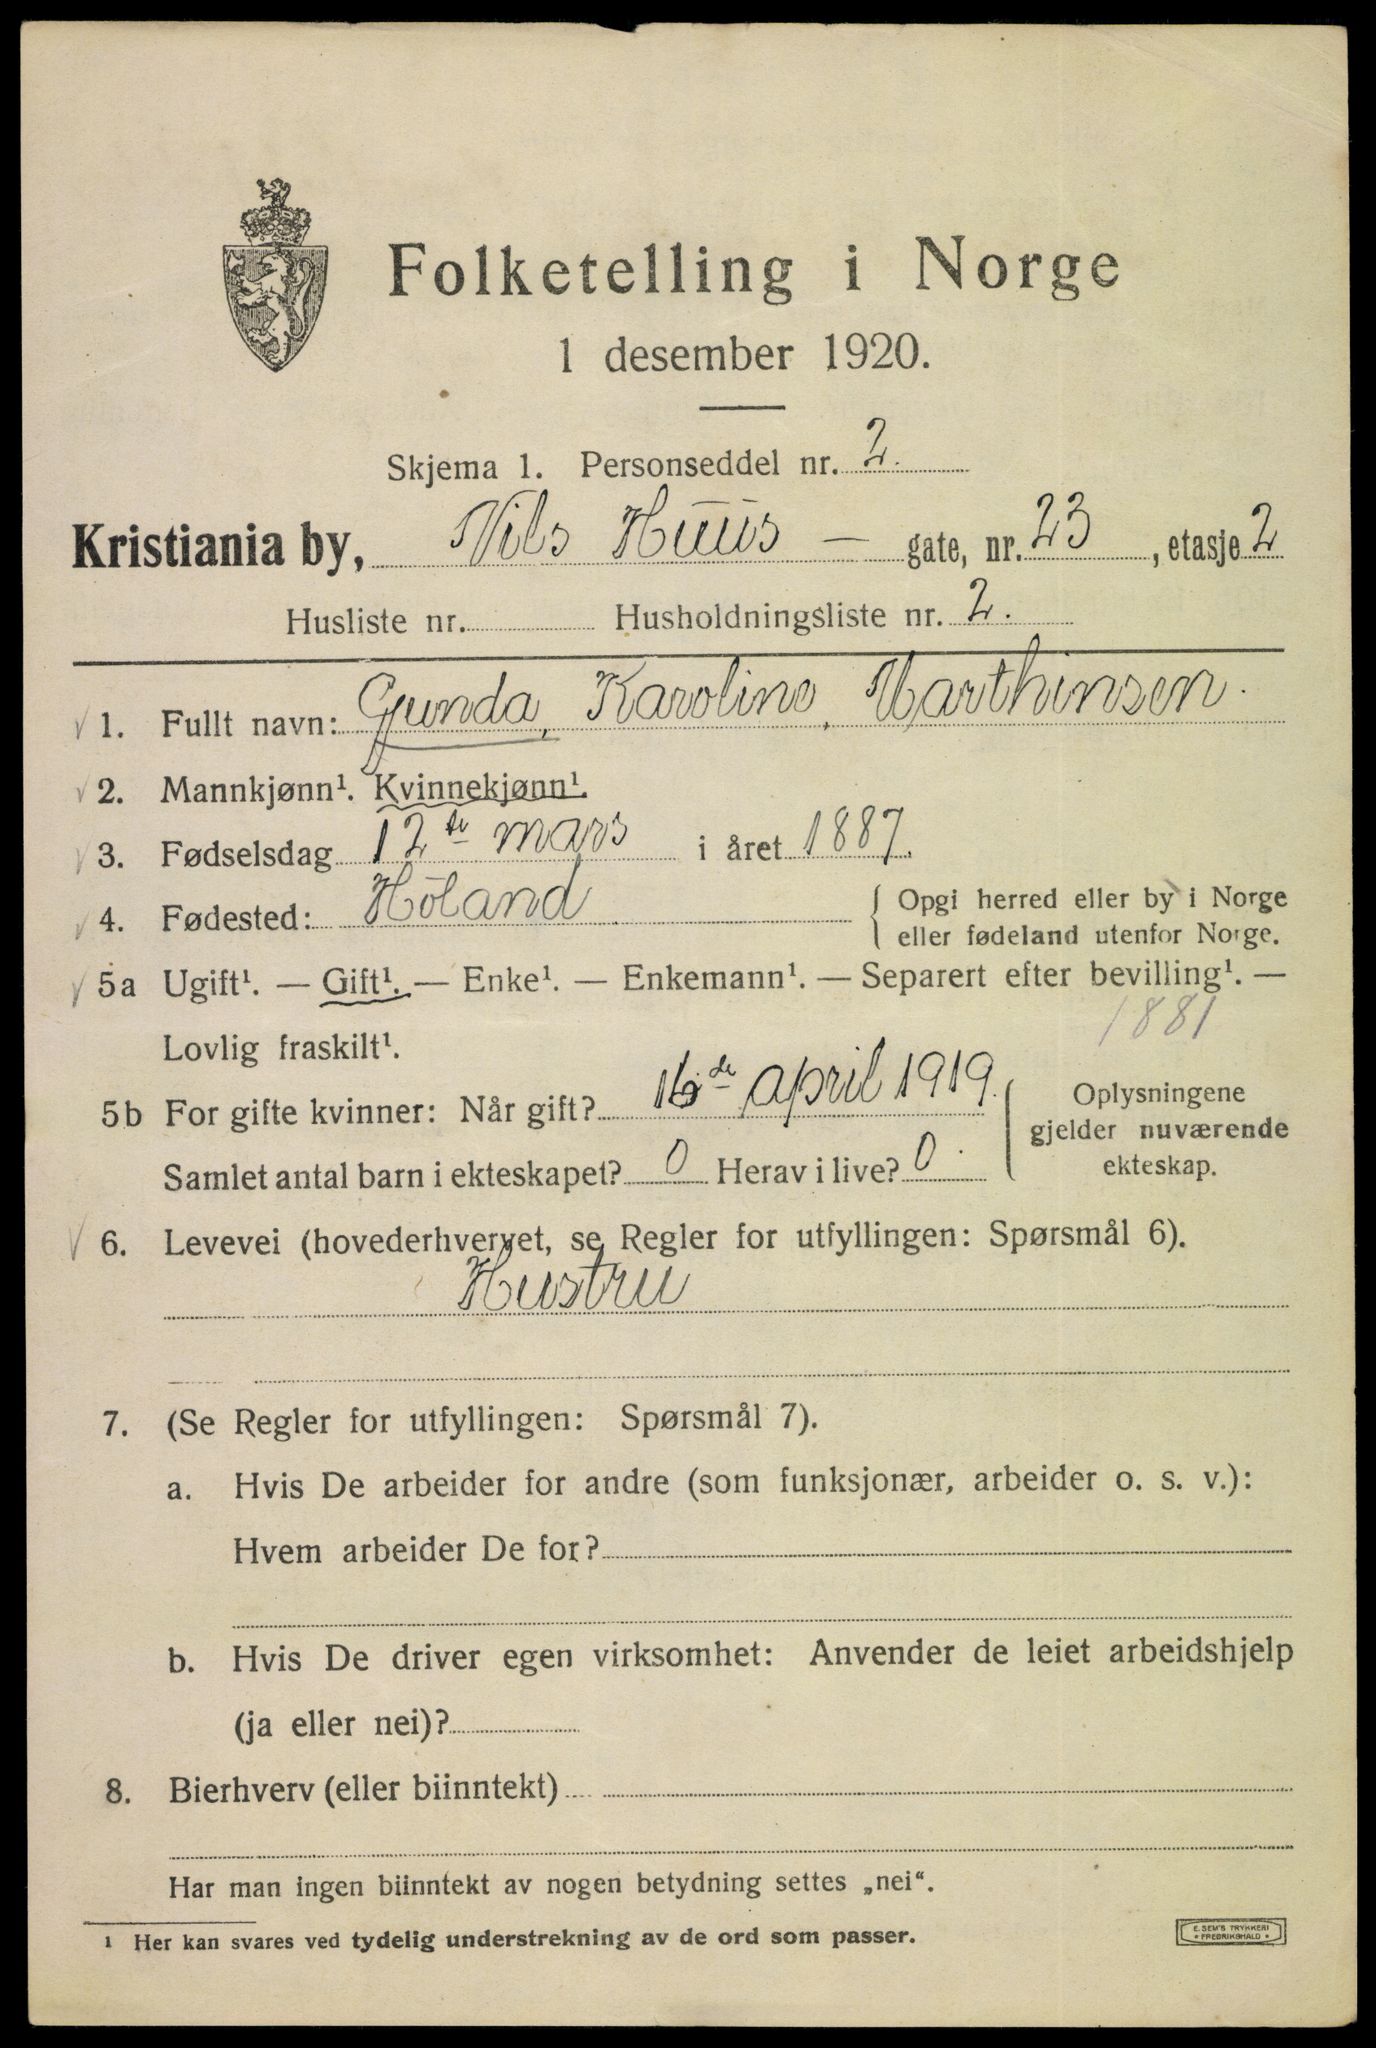 Folketelling i Norge
1 desember 1920.
Skjema 1. Personseddel nr. 2.
Kristiania by, Nils Huus — gate, nr. 23, etasje 2
Husliste nr. Husholdningsliste nr. 2.
1. Fullt navn: Gunda, Karoline, Marthinsen.
2. Mannkjønn¹. Kvinnekjønn¹.
3. Fødselsdag 12te mars i året 1887.
4. Fødested: Höland { Opgi herred eller by i Norge
eller fødeland utenfor Norge.
5a Ugift¹. — Gift¹. — Enke¹. — Enkemann¹. — Separert efter bevilling¹. —
Lovlig fraskilt¹. 1881
5b For gifte kvinner: Når gift? 16de april 1919.
Samlet antal barn i ekteskapet? 0 Herav i live? 0.
Oplysningene
gjelder nuværende
ekteskap.
6. Levevei (hovederhvervet, se Regler for utfyllingen: Spørsmål 6).
Hustru
7. (Se Regler for utfyllingen: Spørsmål 7).
a. Hvis De arbeider for andre (som funksjonær, arbeider o. s. v.):
Hvem arbeider De for?
b. Hvis De driver egen virksomhet: Anvender de leiet arbeidshjelp
(ja eller nei)?
8. Bierhverv (eller biinntekt)
Har man ingen biinntekt av nogen betydning settes „nei“.
¹ Her kan svares ved tydelig understrekning av de ord som passer.
E. SEM'S TRYKKERI
* FREDRIKSHALD *